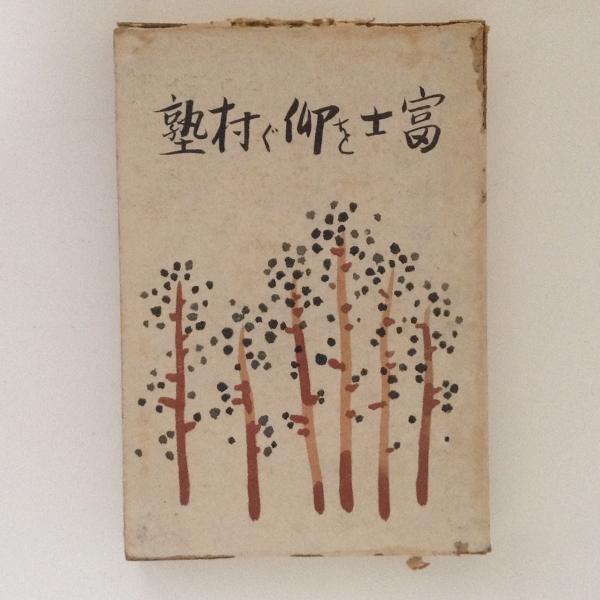 富士を仰ぐ村塾